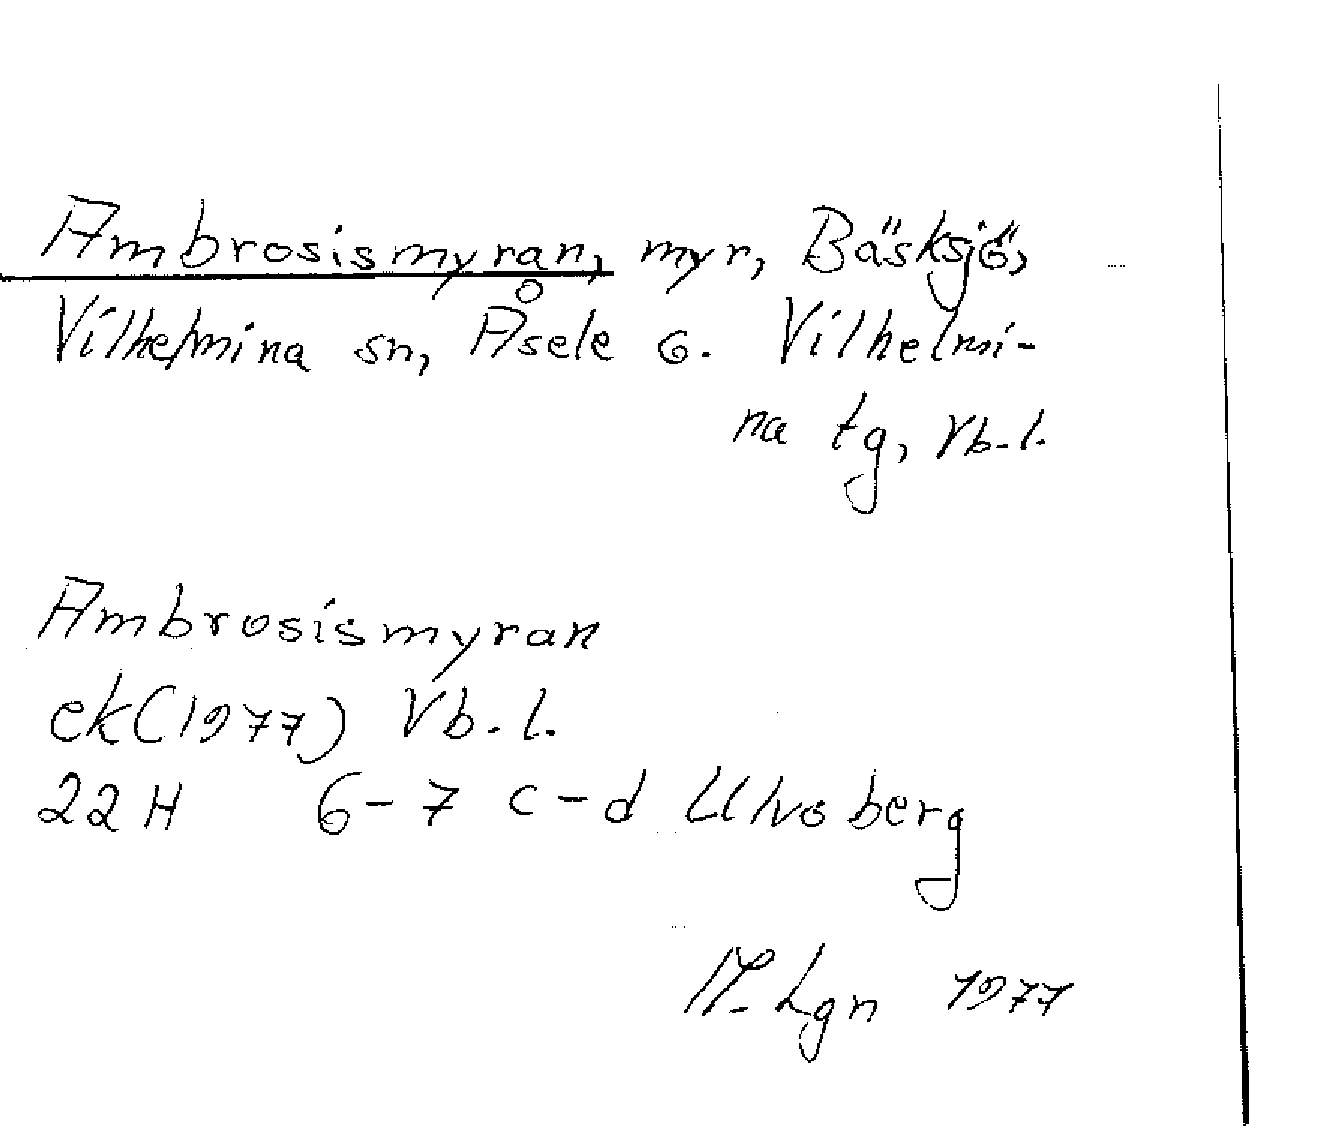 Ambrosismyran, myr, Bäsksjö,
Vilhelmina sn, Åsele 6. Vilhelmi-
na tg, Vb.l.
Ambrosismyran
ek(1977) Vb.l.
22H 6-7 c-d Ulvoberg
M. Lgn 1977